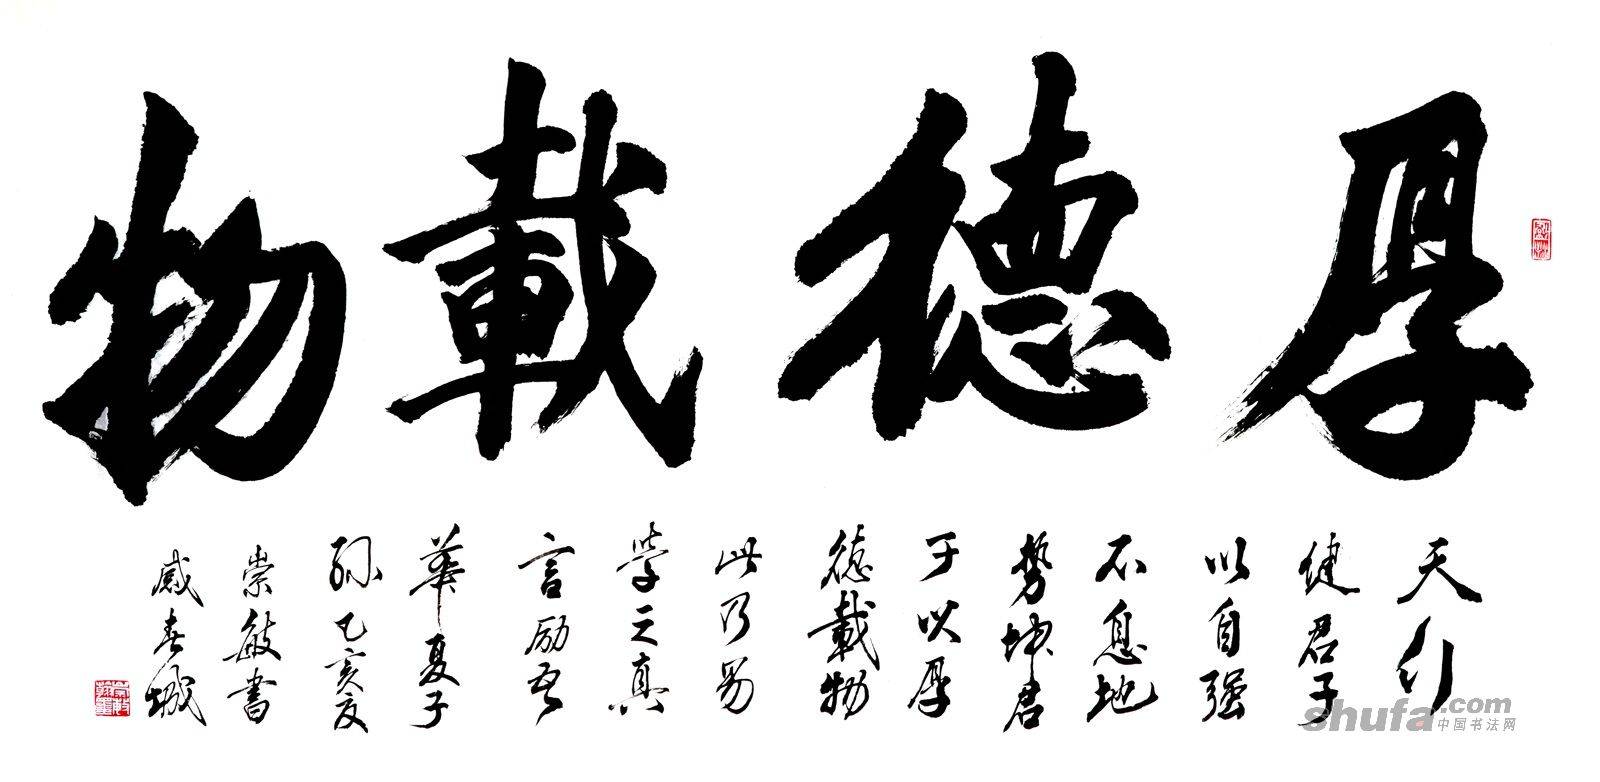 厚德載物
天行
健君子
以自强
不息地
势坤君
子以厚
德載物
此乃易
學之真
言励吾
華夏子
孙乙亥夏
崇敏書
於春城
shufa.com
中国书法网